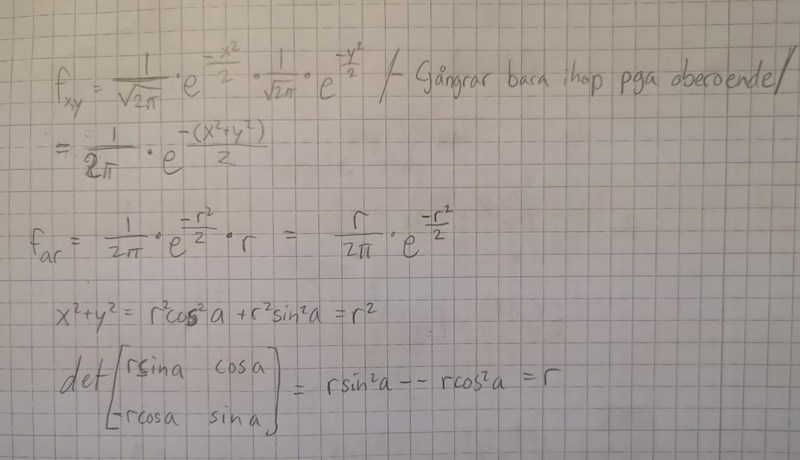 f_xy = 1/√2π · e^(-x²/2) · 1/√2π · e^(-y²/2) /- Gångrar bara ihop pga oberoende/
= 1/2π · e^(-(x²+y²)/2)
f_ar = 1/2π · e^(-r²/2) · r = r/2π · e^(-r²/2)
x²+y² = r²cos²a + r²sin²a = r²
det [rsina cosa
-rcosa sina] = rsin²a -- rcos²a = r